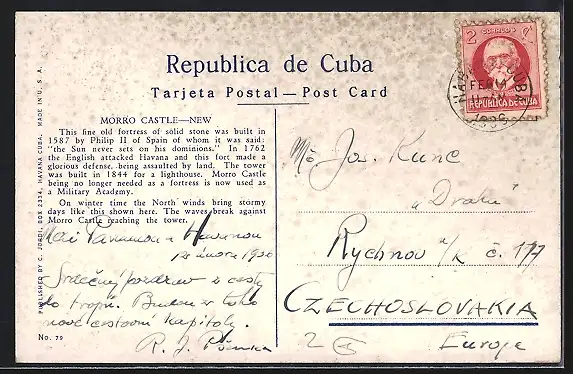 Republica de Cuba
Tarjeta Postal — Post Card
MORRO CASTLE—NEW
This fine old fortress of solid stone was built in
1587 by Philip II of Spain of whom it was said:
"the Sun never sets on his dominions." In 1762
the English attacked Havana and this fort made a
glorious defense, being assaulted by land. The tower
was built in 1844 for a lighthouse. Morro Castle
being no longer needed as a fortress is now used as
a Military Academy.
On winter time the North winds bring stormy
days like this shown here. The waves break against
Morro Castle reaching the tower.
Mezi Panamou a Havanou
12 února 1936
Srdečný pozdrav z cesty
do tropů. Budou z toho
nové cestovní kapitoly.
R. J.
No. 79
PUBLISHED BY C. JORDI, BOX 2334, HAVANA CUBA. MADE IN U. S. A.
2 CORREO ¢
REPUBLICA DE CUBA
FEB
1936
Jos. Kunc
Rychnov n/K č. 177
CZECHOSLOVAKIA
Europe
2